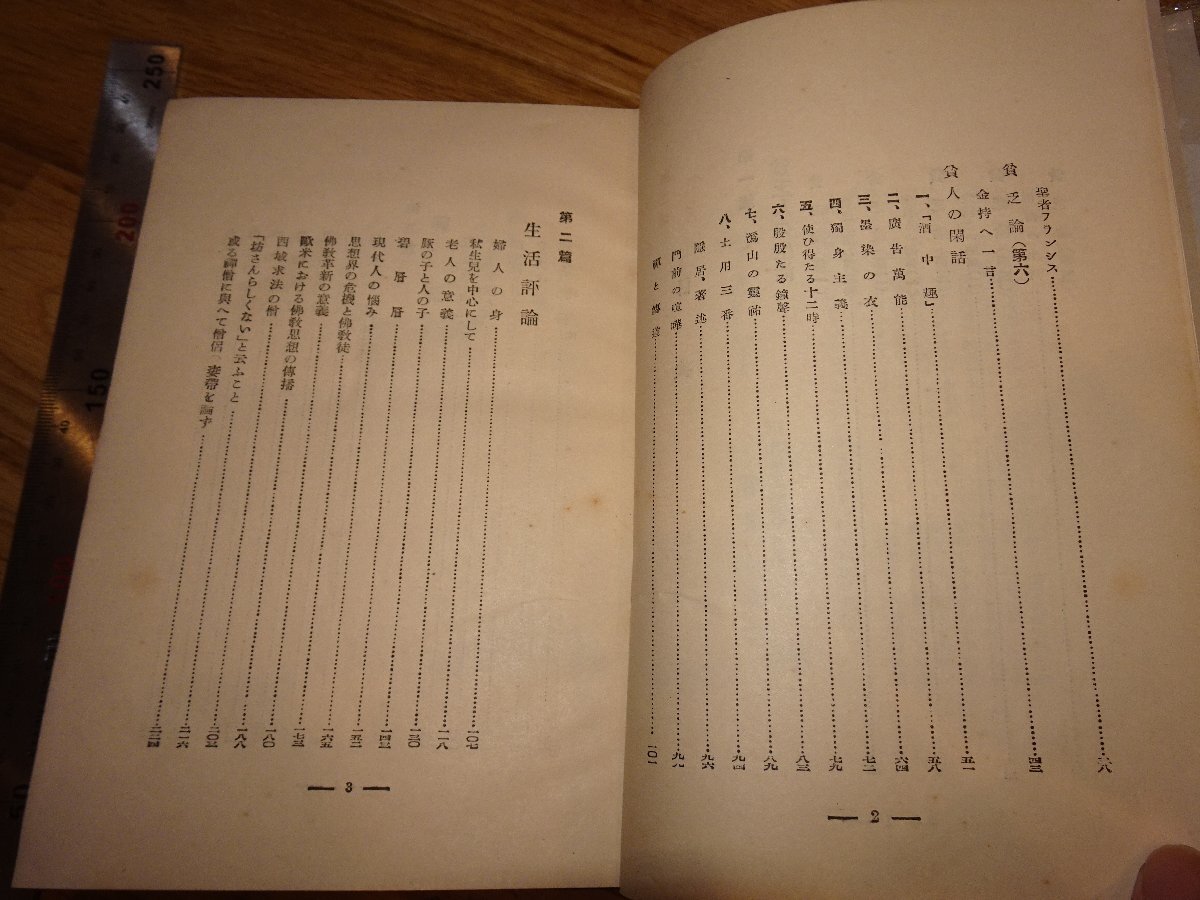 聖者フランシス……三八
貧乏論(第六)
金持へ一言……四三
貧人の閑話
一、「酒中趣」……五一
二、廣告萬能……五八
三、墨染の衣……六四
四、獨身主義……七二
五、使ひ得たる十二時……七九
六、殷殷たる鐘聲……八三
七、湯山の靈祐……八九
八、土用三番……九四
隱居、著述……九六
門前の喧嘩……九八
……一〇一
— 2 —
第二篇
生活評論
婦人の身……一〇七
私生兒を中心にして……一一八
老人の意義……一三〇
豚の子と人の子……一四三
碧眉……
現代人の惱み……一五二
思想界の危機と佛教徒……一六五
佛教革新の意義……一七三
歐米における佛教思想の傳播……一八〇
西域求法の僧……一八八
「坊さんらしくない」と云ふこと……二〇三
或る禪僧に與へて僧侶妻帶を論ず……
二一六
二二四
— 3 —
250
200
150